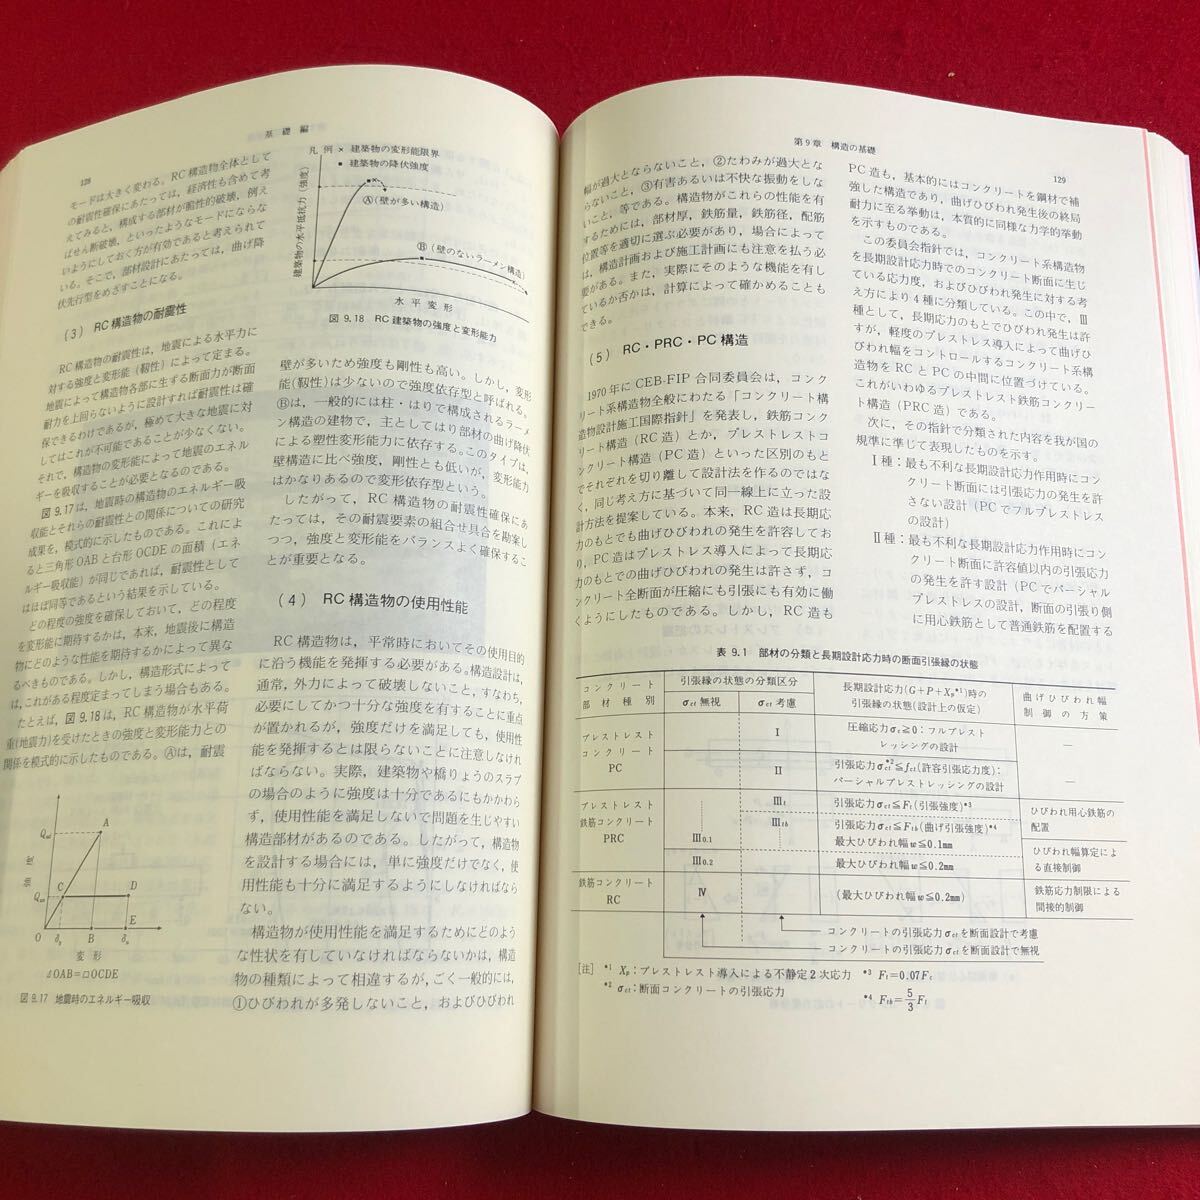 基 礎 編
128
モードは大きく変わる。RC構造物全体として
の耐震性確保にあたっては，経済性も含めて考
えてみると，構成する部材が脆性的破壊，例え
ばせん断破壊，といったようなモードにならな
いようにしておく方が有効であると考えられて
いる。そこで，部材設計にあたっては，曲げ降
伏先行型をめざすことになる。
(3) RC構造物の耐震性
RC構造物の耐震性は，地震による水平力に
対する強度と変形能（靱性）によって定まる。
地震によって構造物各部に生ずる断面力が断面
耐力を上回らないように設計すれば耐震性は確
保できるわけであるが，極めて大きな地震に対
してはこれが不可能であることが少なくない。
それで，構造物の変形能によって地震のエネル
ギーを吸収することが必要となるのである。
図9.17は，地震時の構造物のエネルギー吸
収能とそれらの耐震性との関係についての研究
成果を，模式的に示したものである。これによ
ると三角形OABと台形OCDEの面積（エネ
ルギー吸収能）が同じであれば，耐震性として
はほぼ同等であるという結果を示している。
どの程度の強度を確保しておいて，どの程度
を変形能に期待するかは，本来，地震後に構造
物にどのような性能を期待するかによって異な
るべきものである。しかし，構造形式によって
は，これがある程度定まってしまう場合もある。
たとえば，図9.18は，RC構造物が水平荷
重(地震力)を受けたときの強度と変形能力との
関係を模式的に示したものである。Ⓐは，耐震
強 度
A
C
D
O
B
E
変 形
⊿OAB=□OCDE
図9.17 地震時のエネルギー吸収
凡 例 × 建築物の変形能限界
● 建築物の降伏強度
建築物の水平抵抗力(強度)
Ⓐ(壁が多い構造)
Ⓑ(壁のないラーメン構造)
水 平 変 形
図9.18 RC建築物の強度と変形能力
壁が多いため強度も剛性も高い。しかし，変形
能(靱性)は少ないので強度依存型と呼ばれる。
Ⓑは，一般的には柱・はりで構成されるラーメ
ン構造の建物で，主としてはり部材の曲げ降伏
による塑性変形能力に依存する。このタイプは，
壁構造に比べ強度，剛性とも低いが，変形能力
はかなりあるので変形依存型という。
したがって，RC構造物の耐震性確保にあ
たっては，その耐震要素の組合せ具合を勘案し
つつ，強度と変形能をバランスよく確保するこ
とが重要となる。
(4) RC構造物の使用性能
RC構造物は，平常時においてその使用目的
に沿う機能を発揮する必要がある。構造設計は，
通常，外力によって破壊しないこと，すなわち，
必要にしてかつ十分な強度を有することに重点
が置かれるが，強度だけを満足しても，使用性
能を発揮するとは限らないことに注意しなけれ
ばならない。実際，建築物や橋りょうのスラブ
の場合のように強度は十分であるにもかかわら
ず，使用性能を満足しないで問題を生じやすい
構造部材があるのである。したがって，構造物
を設計する場合には，単に強度だけでなく，使
用性能も十分に満足するようにしなければなら
ない。
構造物が使用性能を満足するためにどのよう
な性状を有していなければならないかは，構造
物の種類によって相違するが，ごく一般的には，
①ひびわれが多発しないこと，およびひびわれ
第9章 構造の基礎
129
幅が過大とならないこと，②たわみが過大とな
らないこと，③有害あるいは不快な振動をしな
いこと，等である。構造物がこれらの性能を有
するためには，部材厚，鉄筋量，鉄筋径，配筋
位置等を適切に選ぶ必要があり，場合によって
は，構造計画および施工計画にも注意を払う必
要がある。また，実際にそのような機能を有し
ているか否かは，計算によって確かめることも
できる。
(5) RC・PRC・PC構造
1970年にCEB-FIP合同委員会は，コンク
リート系構造物全般にわたる「コンクリート構
造物設計施工国際指針」を発表し，鉄筋コンク
リート構造（RC造）とか，プレストレストコ
ンクリート構造（PC造）といった区別のもと
でそれぞれを切り離して設計法を作るのではな
く，同じ考え方に基づいて同一線上に立った設
計方法を提案している。本来，RC造は長期応
力のもとでも曲げひびわれの発生を許容してお
り，PC造はプレストレス導入によって長期応
力のもとでの曲げひびわれの発生は許さず，コ
ンクリート全断面が圧縮にも引張にも有効に働
くようにしたものである。しかし，RC造も
PC造も，基本的にはコンクリートを鋼材で補
強した構造であり，曲げひびわれ発生後の終局
耐力に至る挙動は，本質的に同様な力学的挙動
を示すものである。
この委員会指針では，コンクリート系構造物
を長期設計応力時でのコンクリート断面に生じ
ている応力度，およびひびわれ発生に対する考
え方により4種に分類している。この中で，Ⅲ
種として，長期応力のもとでひびわれ発生は許
すが，軽度のプレストレス導入によって曲げひ
びわれ幅をコントロールするコンクリート系構
造物をRCとPCの中間に位置づけている。
これがいわゆるプレストレスト鉄筋コンクリー
ト構造（PRC造）である。
次に，その指針で分類された内容を我が国の
規準に準じて表現したものを示す。
Ⅰ種：最も不利な長期設計応力作用時にコン
クリート断面には引張応力の発生を許
さない設計（PCでフルプレストレス
の設計）
Ⅱ種：最も不利な長期設計応力作用時にコン
クリート断面に許容値以内の引張応力
の発生を許す設計（PCでパーシャル
プレストレスの設計，断面の引張り側
に用心鉄筋として普通鉄筋を配置する
表 9.1 部材の分類と長期設計応力時の断面引張縁の状態
コンクリート部材種別
引張縁の状態の分類区分
σct無視 σct考慮
長期設計応力(G+P+Xp*1)時の
引張縁の状態(設計上の仮定)
曲げひびわれ幅
制御の方策
プレストレスト
コンクリート
PC
Ⅰ
圧縮応力σc≧0：フルプレスト
レッシングの設計
—
Ⅱ
引張応力σct*2≦fct(許容引張応力度)：
パーシャルプレストレッシングの設計
—
プレストレスト
鉄筋コンクリート
PRC
Ⅲt
引張応力σct≦Ft(引張強度)*3
ひびわれ用心鉄筋の
配置
Ⅲ0.1
Ⅲtb
引張応力σct≦Ftb(曲げ引張強度)*4
最大ひびわれ幅w≦0.1mm
Ⅲ0.2
最大ひびわれ幅w≦0.2mm
ひびわれ幅算定によ
る直接制御
鉄筋コンクリート
RC
Ⅳ
(最大ひびわれ幅w≦0.2mm)
鉄筋応力制限による
間接的制御
コンクリートの引張応力σctを断面設計で考慮
コンクリートの引張応力σctを断面設計で無視
[注] *1 Xp：プレストレスト導入による不静定2次応力 *3 Ft=0.07Fc
*2 σct：断面コンクリートの引張応力 *4 Ftb=5/3Ft